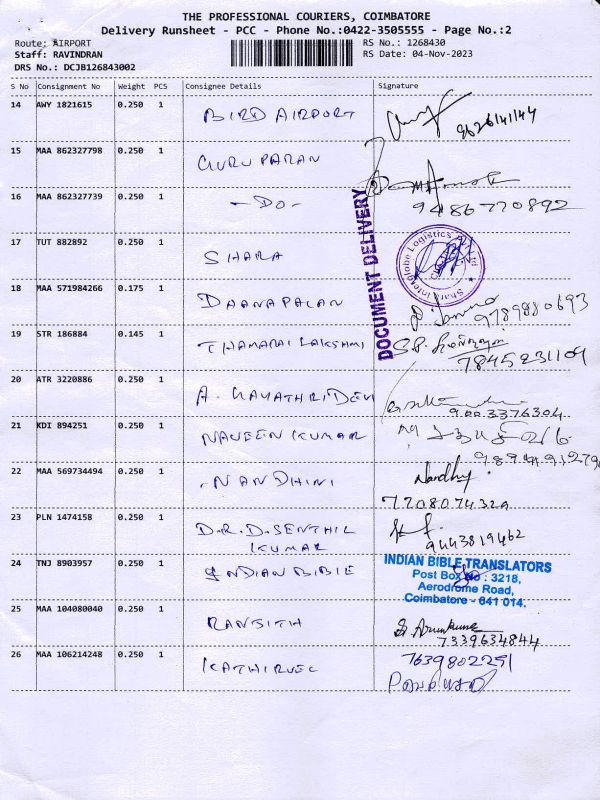 THE PROFESSIONAL COURIERS, COIMBATORE
Delivery Runsheet - PCC - Phone No.:0422-3505555 - Page No.:2
Route: AIRPORT
RS No.: 1268430
Staff: RAVINDRAN
RS Date: 04-Nov-2023
DRS No.: DCJB126843002
S No Consignment No Weight PCS Consignee Details Signature
14 AWY 1821615 0.250 1 BIRD AIRPORT
9626141144
15 MAA 862327798 0.250 1 GURU PARAN
16 MAA 862327739 0.250 1 -DO-
9486770892
DOCUMENT DELIVERY
17 TUT 882892 0.250 1 SHARA
Shara Interglobe Logistics Pvt Ltd
18 MAA 571984266 0.175 1 DAANAPALAN
9789880693
19 STR 186884 0.145 1 THAMARAI LAKSHMI
7845231109
20 ATR 3220886 0.250 1 A. GAYATHRI DEVI
9003376304.
21 KDI 894251 0.250 1 NAVEEN KUMAR
22 MAA 569734494 0.250 1 NANDHINI Nandhy.
7708074329
23 PLN 1474158 0.250 1 D.R.D. SENTHIL
KUMAR
9443819462
24 TNJ 8903957 0.250 1 INDIAN BIBIE
INDIAN BIBLE TRANSLATORS
Post Box No : 3218,
Aerodrome Road,
Coimbatore - 641 014.
25 MAA 104080040 0.250 1 RANSITH
7339634844
26 MAA 106214248 0.250 1 KATHIRVEL
7639802291